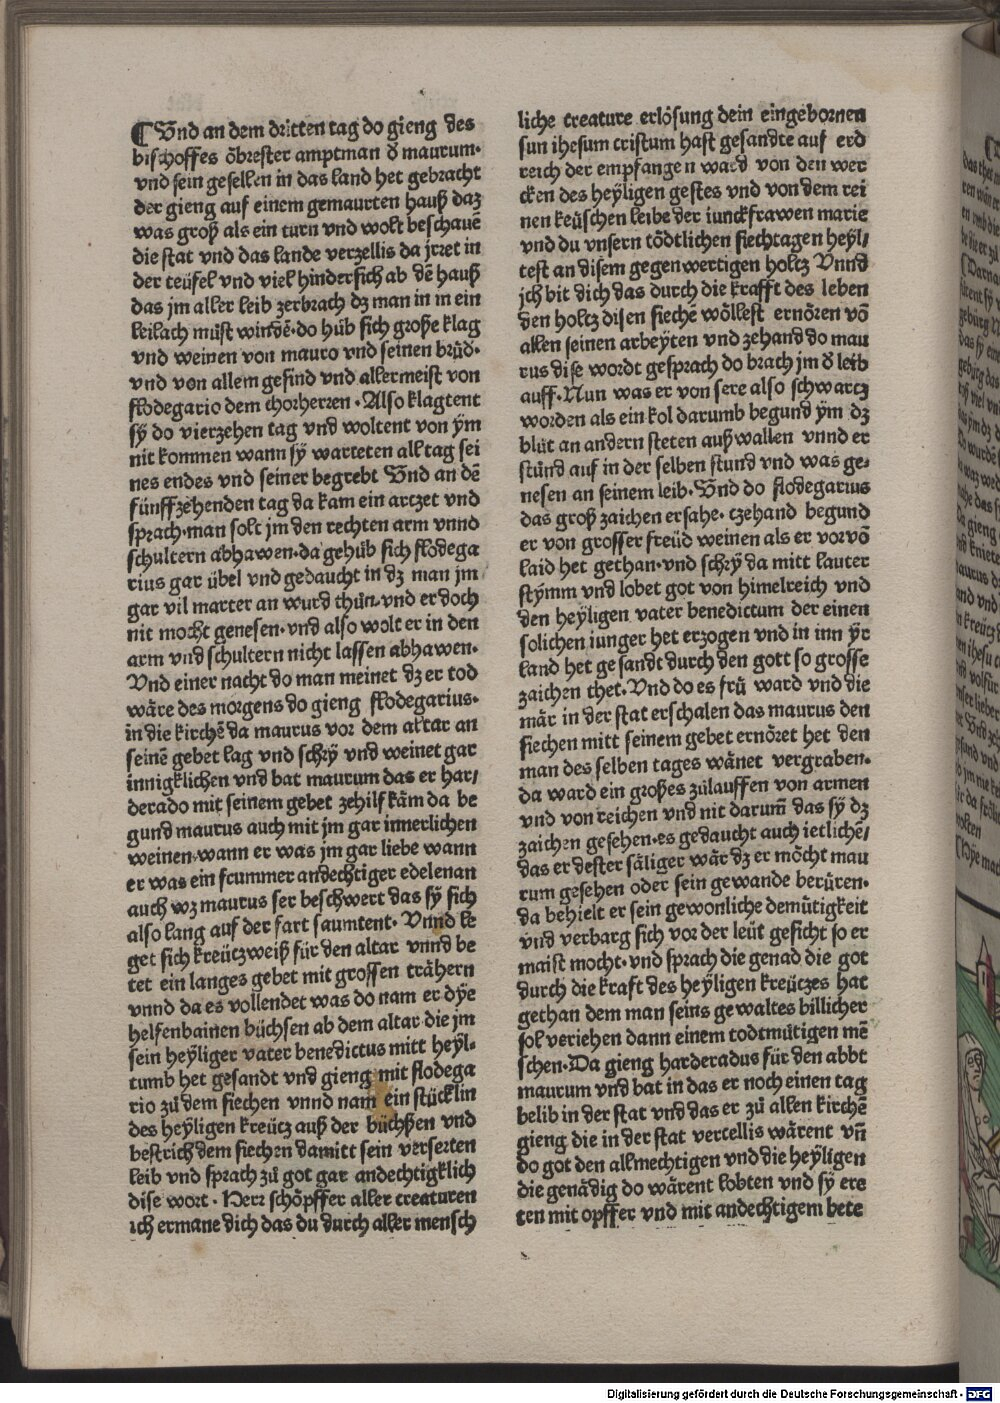 ¶ Und an dem dritten tag do gieng des
bischoffes öbrester amptman d̕ maurum·
vnd sein gesellen in das land het gebracht
der gieng auf einem gemaurten hauß daz
was groß als ein turn vnd wolt beschauē
die stat vnd das lande verzellis da jrret in
der teüfel vnd viel hindersich ab dē hauß
das jm aller leib zerbrach dz man in in ein
leilach müst windē·do hůb sich große klag
vnd weinen von mauro vnd seinen brůd·
vnd von allem gesind vnd allermeist von
flodegario dem chorherren·Also klagtent
sÿ do vierzehen tag vnd woltent von ÿm
nit kommen wann sÿ warteten all tag sei
nes endes vnd seiner begrebt Und an dē
fünffzehenden tag da kam ein artzet vnd
sprach·man solt jm den rechten arm vnnd
schultern abhawen·da gehůb sich flodega
rius gar übel vnd gedaucht in dz man jm
gar vil marter an wurd thůn·vnd er doch
nit mocht genesen·vnd also wolt er in den
arm vnd schultern nicht lassen abhawen·
Und einer nacht do man meinet dz er tod
wäre des morgens do gieng flodegarius·
in die kirchē da maurus vor dem altar an
seinē gebet lag vnd schrÿ vnd weinet gar
innigklichen vnd bat maurum das er har/
derado mit seinem gebet zehilf käm da be
gund maurus auch mit jm gar innerlichen
weinen·wann er was jm gar liebe wann
er was ein frummer andechtiger edelenan
auch wz maurus ser beschwert das sÿ sich
also lang auf der fart saumtent·Vnnd le
get sich kreützweiß für den altar vnnd be
tet ein langes gebet mit grossen trähern
vnnd da es vollendet was do nam er dÿe
helfenbainen büchsen ab dem altar die jm
sein heÿliger vater benedictus mitt heÿl·
tumb het gesandt vnd gieng mit flodega
rio zů dem siechen vnnd nam ein stücklin
des heÿligen kreütz auß der büchßen vnd
bestrich dem siechen damitt sein verserten
leib vnd sprach zů got gar andechtigklich
dise wort·Herr schöpffer aller creaturen
ich ermane dich das du durch aller mensch
liche creature erlösung dein eingebornen
sun ihesum cristum hast gesandte auf erd
reich der empfangen ward von den wer
cken des heÿligen gestes vnd von dem rei
nen keüschen leibe der iunckfrawen marie
vnd du vnsern tödtlichen siechtagen heÿl/
test an disem gegenwertigen holtz Vnnd
jch bit dich das durch die krafft des leben
den holtz disen siechē wöllest ernören vō
allen seinen arbeyten vnd zehand do mau
rus dise wordt gesprach do brach jm d̕ leib
auff·Nun was er von sere also schwartz
worden als ein kol darumb begund ÿm dz
blůt an andern steten auß wallen vnnd er
stůnd auf in der selben stund vnd was ge·
nesen an seinem leib·Und do flodegarius
das groß zaichen ersahe·czehand begund
er von grosser freüd weinen als er vorvō
laid het gethan·vnd schrÿ da mitt lauter
stÿmm vnd lobet got von himelreich vnd
den heÿligen vater benedictum der einen
solichen iunger het erzogen vnd in inn ÿr
land het gesandt durch den gott so grosse
zaichen thet·Und do es frů ward vnd die
mär in der stat erschalen das maurus den
siechen mitt seinem gebet ernöret het den
man des selben tages wänet vergraben·
da ward ein großes zůlauffen von armen
vnd von reichen vnd nit darum̄ das sÿ dz
zaichen gesehen·es gedaucht auch ietlichē/
das er dester säliger wär dz er möcht mau
rum gesehen oder sein gewande berüren·
da behielt er sein gewonliche demütigkeit
vnd verbarg sich vor der leüt gesicht so er
maist mocht·vnd sprach die genad die got
durch die kraft des heÿligen kreützes hat
gethan dem man seins gewaltes billicher
sol veriehen dann einem todtmütigen mē
schen·Da gieng harderadus für den abbt
maurum vnd bat in das er noch einen tag
belib in der stat vnd das er zů allen kirchē
gieng die in der stat vercellis wärent vn̄
do got den allmechtigen vnd die heÿligen
die genädig do wärent lobten vnd sÿ ere
ten mit opffer vnd mit andechtigem bete
Digitalisierung gefördert durch die Deutsche Forschungsgemeinschaft - DFG